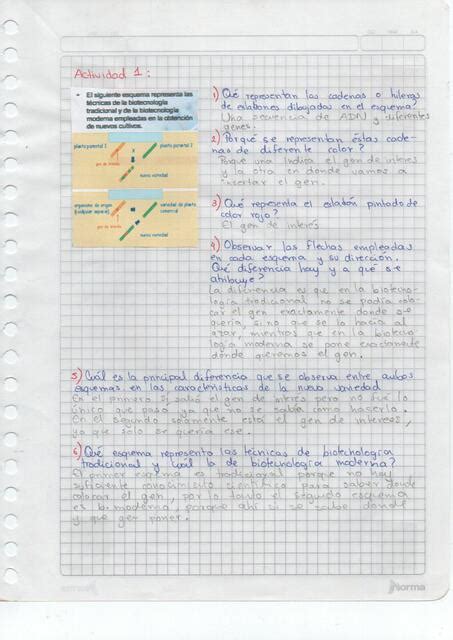 Actividad 1:
• El siguiente esquema representa las
técnicas de la biotecnología
tradicional y de la biotecnología
moderna empleadas en la obtención
de nuevos cultivos.
planta parental 1
planta parental 2
x
gen de interés
nueva variedad
organismo de origen
(cualquier especie)
variedad de planta
comercial
gen de interés
nueva variedad
1) Qué representan las cadenas o hileras
de eslabones dibujadas en el esquema?
Una secuencia de ADN y diferentes
genes.
2) Porqué se representan éstas cade-
nas de diferente color?
Porque una indica el gen de interes
y la otra en donde vamos a
insertar el gen.
3) Qué representa el eslabón pintado de
color rojo?
El gen de interés
4) Observar las flechas empleadas
en cada esquema y su dirección.
Qué diferencia hay y a qué se
atribuye?
La diferencia es que en la biotecno-
logía tradicional no se podía colo-
car el gen exactamente donde se
quería, si no que se lo hacía al
azar, mientras que en la biotecno
logía moderna se pone exactamente
donde queremos el gen.
5) Cuál es la principal diferencia que se observa entre ambos
esquemas en las características de la nueva variedad
En el primero si salió el gen de interés pero no fue lo
único que pasó ya que no se sabía como hacerlo.
En el segundo solamente está el gen de interes,
ya que solo se quería ese.
6) Qué esquema representa las técnicas de biotecnología
tradicional y cuál la de biotecnología moderna?
El primer esquema es tradicional porque no hay
suficiente conocimiento científico para saber donde
colocar el gen, por lo tanto el segundo esquema
es b. moderna, porque ahí si se sabe donde
y que gen poner.
Norma